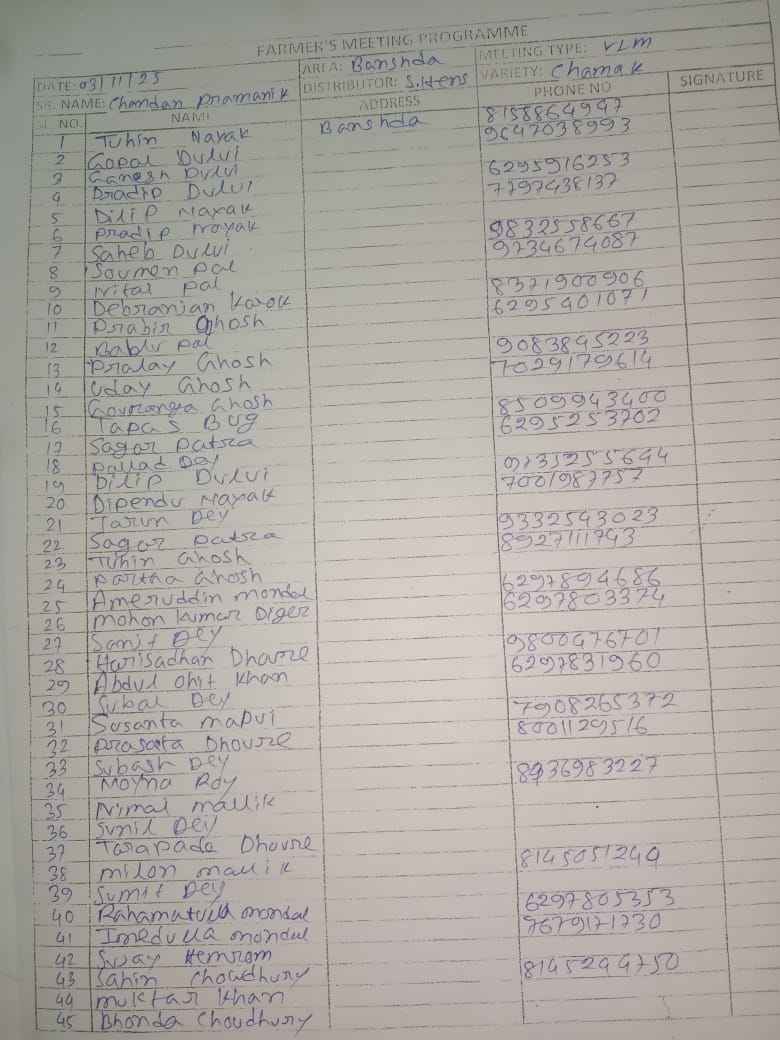 FARMER'S MEETING PROGRAMME
DATE: 03/11/25 AREA: Banshda MEETING TYPE: VLM
SR. NAME: Chandan Pramanik DISTRIBUTOR: S.Hens VARIETY: Chamak
SL NO. NAME ADDRESS PHONE NO SIGNATURE
1 Tuhin Nayak Banshda 8158864947
2 Gopal Dului 9647038993
3 Ganesh Dului
4 Pradip Dului 6295916253
5 Dilip Nayak 7797438137
6 Pradip Nayak
7 Saheb Dului 9832558667
8 Soumen Pal 9734674087
9 Nital Pal
10 Debranjan Karak 8371900906
11 Prabir Ghosh 6295401071
12 Bablu Pal
13 Pralay Ghosh 9083845223
14 Uday Ghosh 7029179614
15 Gouranga Ghosh
16 Tapas Bug 8509943400
17 Sagar Patra 6295253702
18 Pallad Dey
19 Dilip Dului 9735255644
20 Dipendu Nayak 7001987757
21 Tarun Dey
22 Sagar Patra 9332543023
23 Tuhin Ghosh 8927111743
24 Partha Ghosh
25 Ameruddin mondal 6297894686
26 Mohon Kumar Diger 6297803374
27 Sanjit Dey
28 Harisadhan Dhavre 9800476701
29 Abdul Ohit Khan 6297831960
30 Subal Dey
31 Susanta Mapui 7908265372
32 Prasanta Dhoure 8001129516
33 Subash Dey
34 Moyna Roy 8436983227
35 Nimal mallik
36 Sunil Dey
37 Tarapada Dhoure
38 milon mallik 8145051244
39 Sumit Dey
40 Rahamatulla mondal 6297805353
41 Imedulla mondal 7679171730
42 Sujay Hemrom
43 Sahin Choudhury 8145244750
44 muktar Khan
45 Bhonda Choudhury